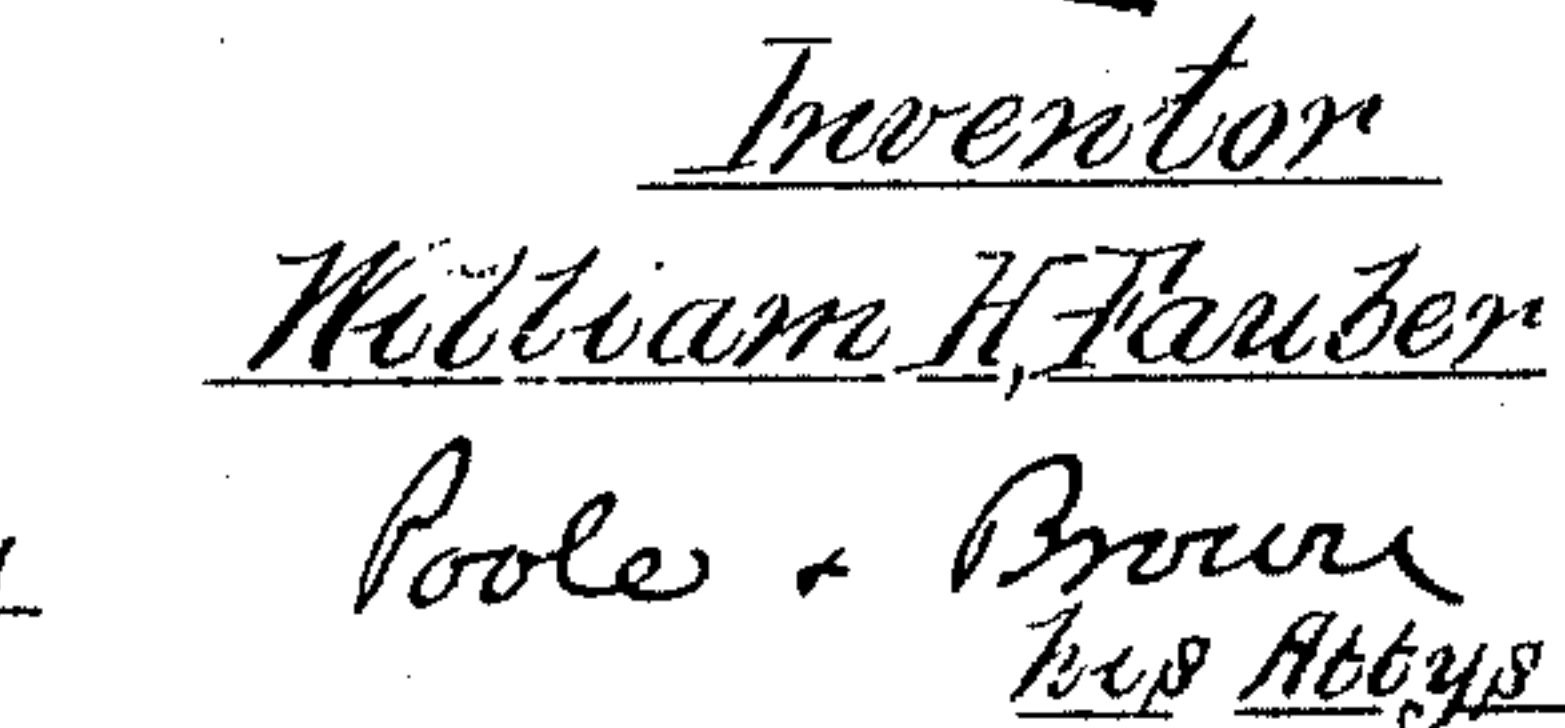 Inventor
William H, Fauber
Poole & Brown
his Attys